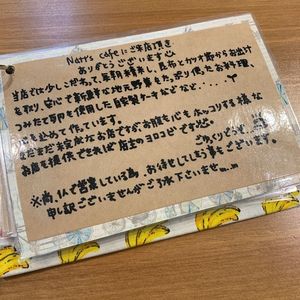 Natt's cafeにご来店頂き
ありがとうございます
当店では少しこだわって、早朝精米し、昆布とかつお節からお出汁
を取り、安心で新鮮な地元野菜もたっぷり使ったお料理、
つみたて卵を使用した自家製ケーキなど、、、、
心を込めて作っています。
まだまだ未定なお店ですが、お腹も心もホッコリする様な
お店を提供できれば店主のヨロコビです
ごゆっくりどうぞ
※尚、1人で営業している為、お待たせしてしまう事もございます。
申し訳ございませんがご了承下さいませ